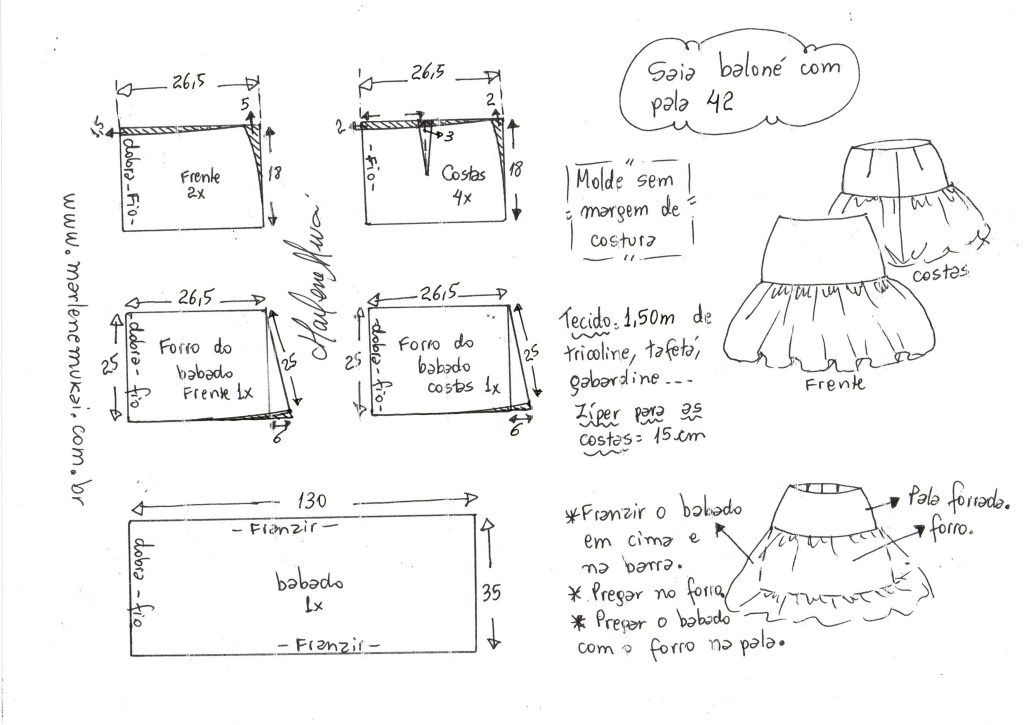 Saia baloné com
pala 42
26,5
5
1,5
dobra-Fio-
Frente
2x
18
26,5
2
2
3
-Fio-
Costas
4x
18
Molde sem
margem de
costura
costas
Frente
www.marlenemukai.com.br
Marlene Mukai
26,5
25
dobra-fio
Forro do
babado
Frente 1x
25
6
26,5
25
dobra-fio-
Forro do
babado
costas 1x
25
6
Tecido: 1,50m de
tricoline, tafetá,
gabardine...
Zíper para as
costas = 15cm
130
- Franzir -
dobra-fio
babado
1x
35
- Franzir -
*Franzir o babado
em cima e
na barra.
* Pregar no forro.
* Pregar o babado
com o forro na pala.
Pala forrada.
forro.